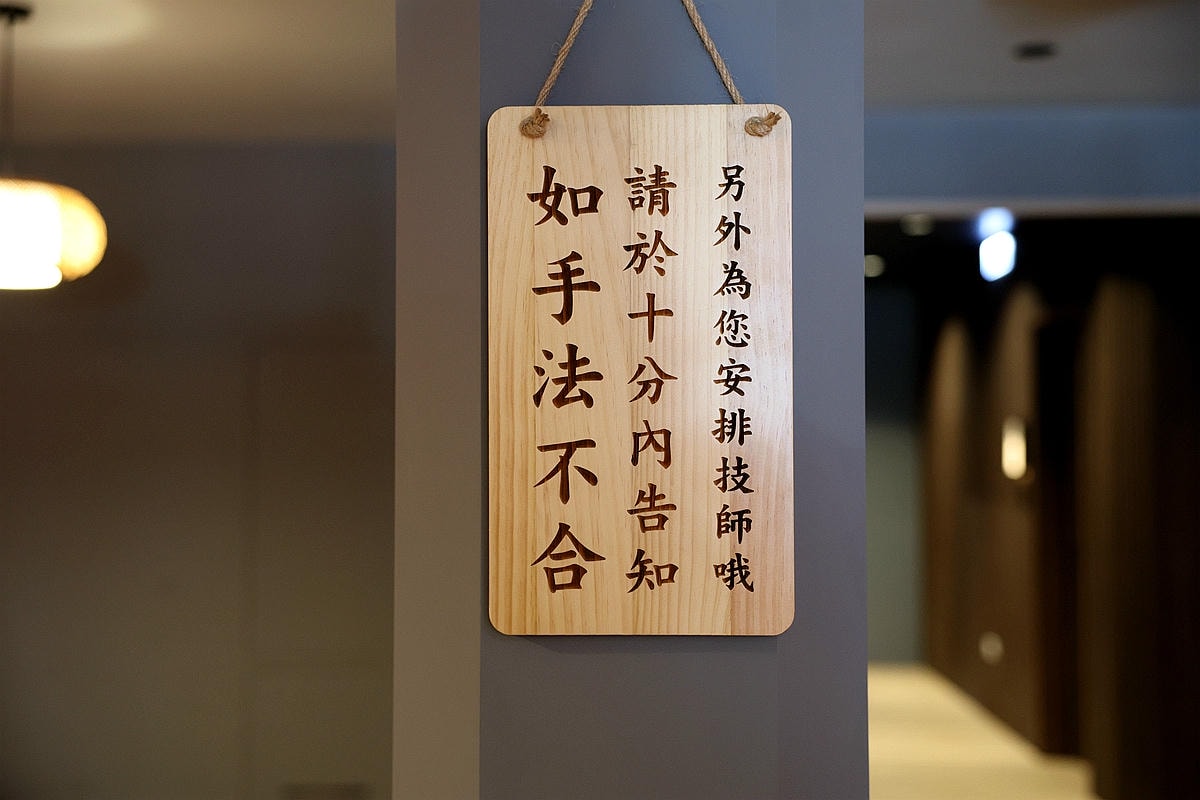 如手法不合
請於十分內告知
另外為您安排技師哦